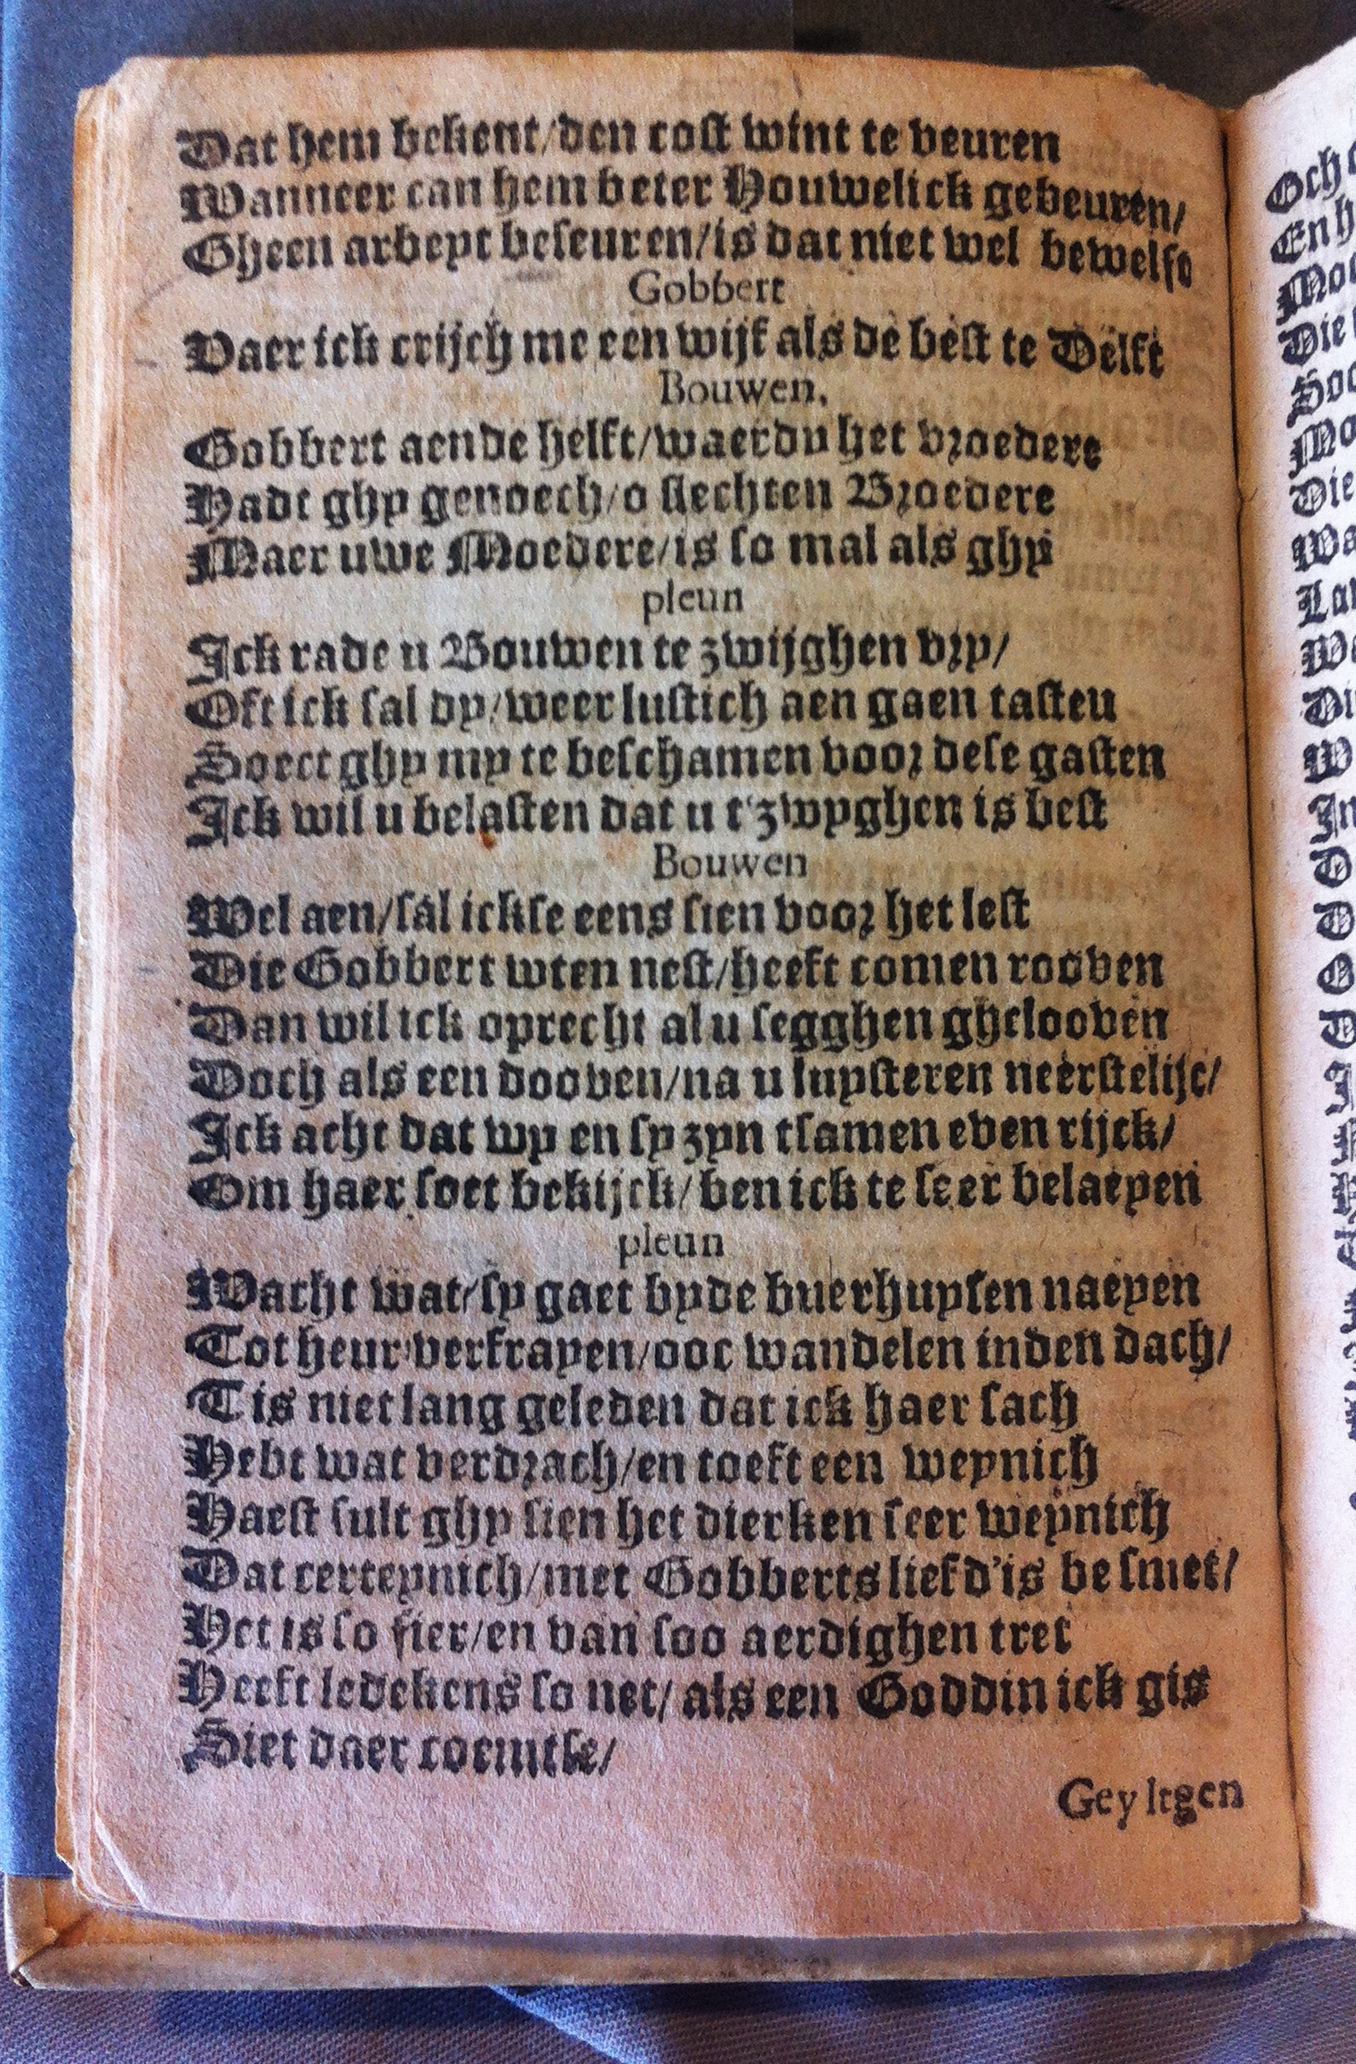 Dat hem bekent/den cost wint te veuren
Wanneer can hem beter Houwelick gebeuren/
Gheen arbeyt beseuren/is dat niet wel bewelft
Gobbert
Vaer ick crijch me een wijf als de best te Delft
Bouwen.
Gobbert aende helft/waerdu het vroedere
Hadt ghy genoech/o slechten Broedere
Maer uwe Moedere/is so mal als ghy
pleun
Ick rade u Bouwen te zwijghen vry/
Oft ick sal dy/weer lustich aen gaen tasten
Soect ghy my te beschamen voor dese gasten
Ick wil u belasten dat u t'zwyghen is best
Bouwen
Wel aen/sal ickse eens sien voor het lest
Die Gobbert wten nest/heeft comen rooven
Dan wil ick oprecht al u segghen ghelooven
Doch als een dooven/na u luysteren neerstelijc/
Ick acht dat wy en sy zyn tsamen even rijck/
Om haer soet bekijck/ben ick te seer belaeyen
pleun
Wacht wat/sy gaet byde buerhuysen naeyen
Tot heur verfrayen/ooc wandelen inden dach/
Tis niet lang geleden dat ick haer sach
Hebt wat verdrach/en toeft een weynich
Haest sult ghy sien het dierken seer weynich
Dat certeynich/met Gobberts liefd'is be smet/
Het is so fier/en van soo aerdighen tret
Heeft ledekens so net/als een Goddin ick gis
Siet daer coemtse/
Gey ltgen
Och
En h
Die
Die
Wa
Wa
Di
W
In
D
D